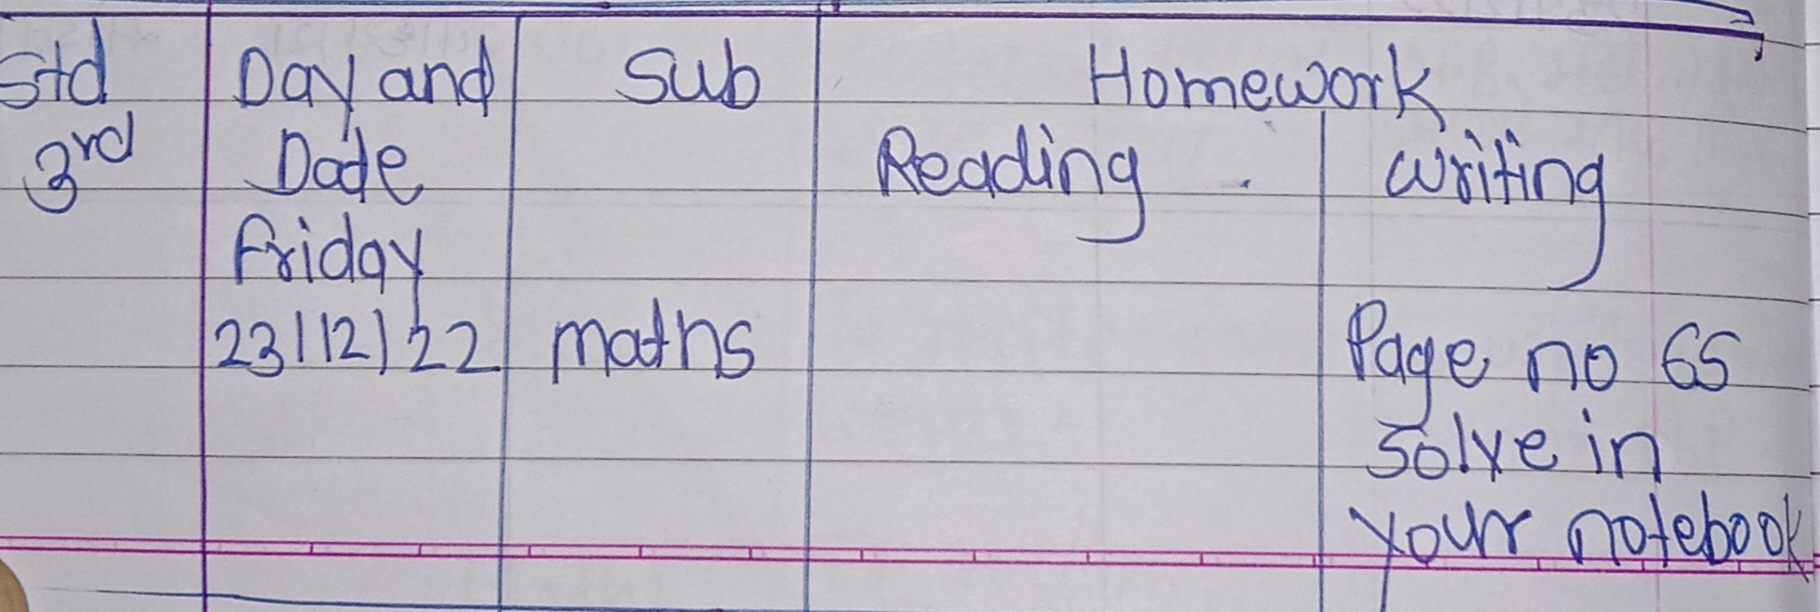 Std Day and Sub Homework
3rd Date Reading writing
Friday
23/12/22 maths Page no 65
solve in
your notebook